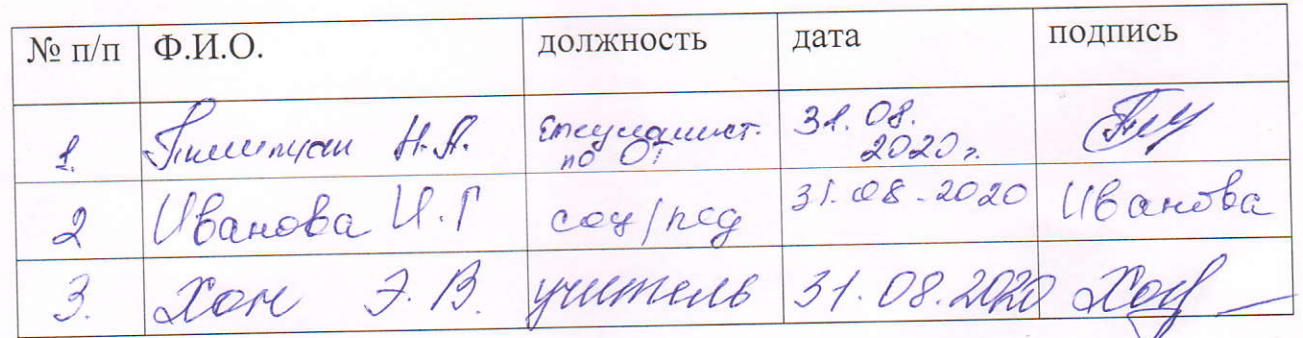 № п/п Ф.И.О. должность дата подпись
1. Н.А. специалист. по ОТ 31.08. 2020 г.
2 Иванова И.Г соц/пед 31.08.2020 Иванова
3. Хон Э.В. учитель 31.08.2020 Хон